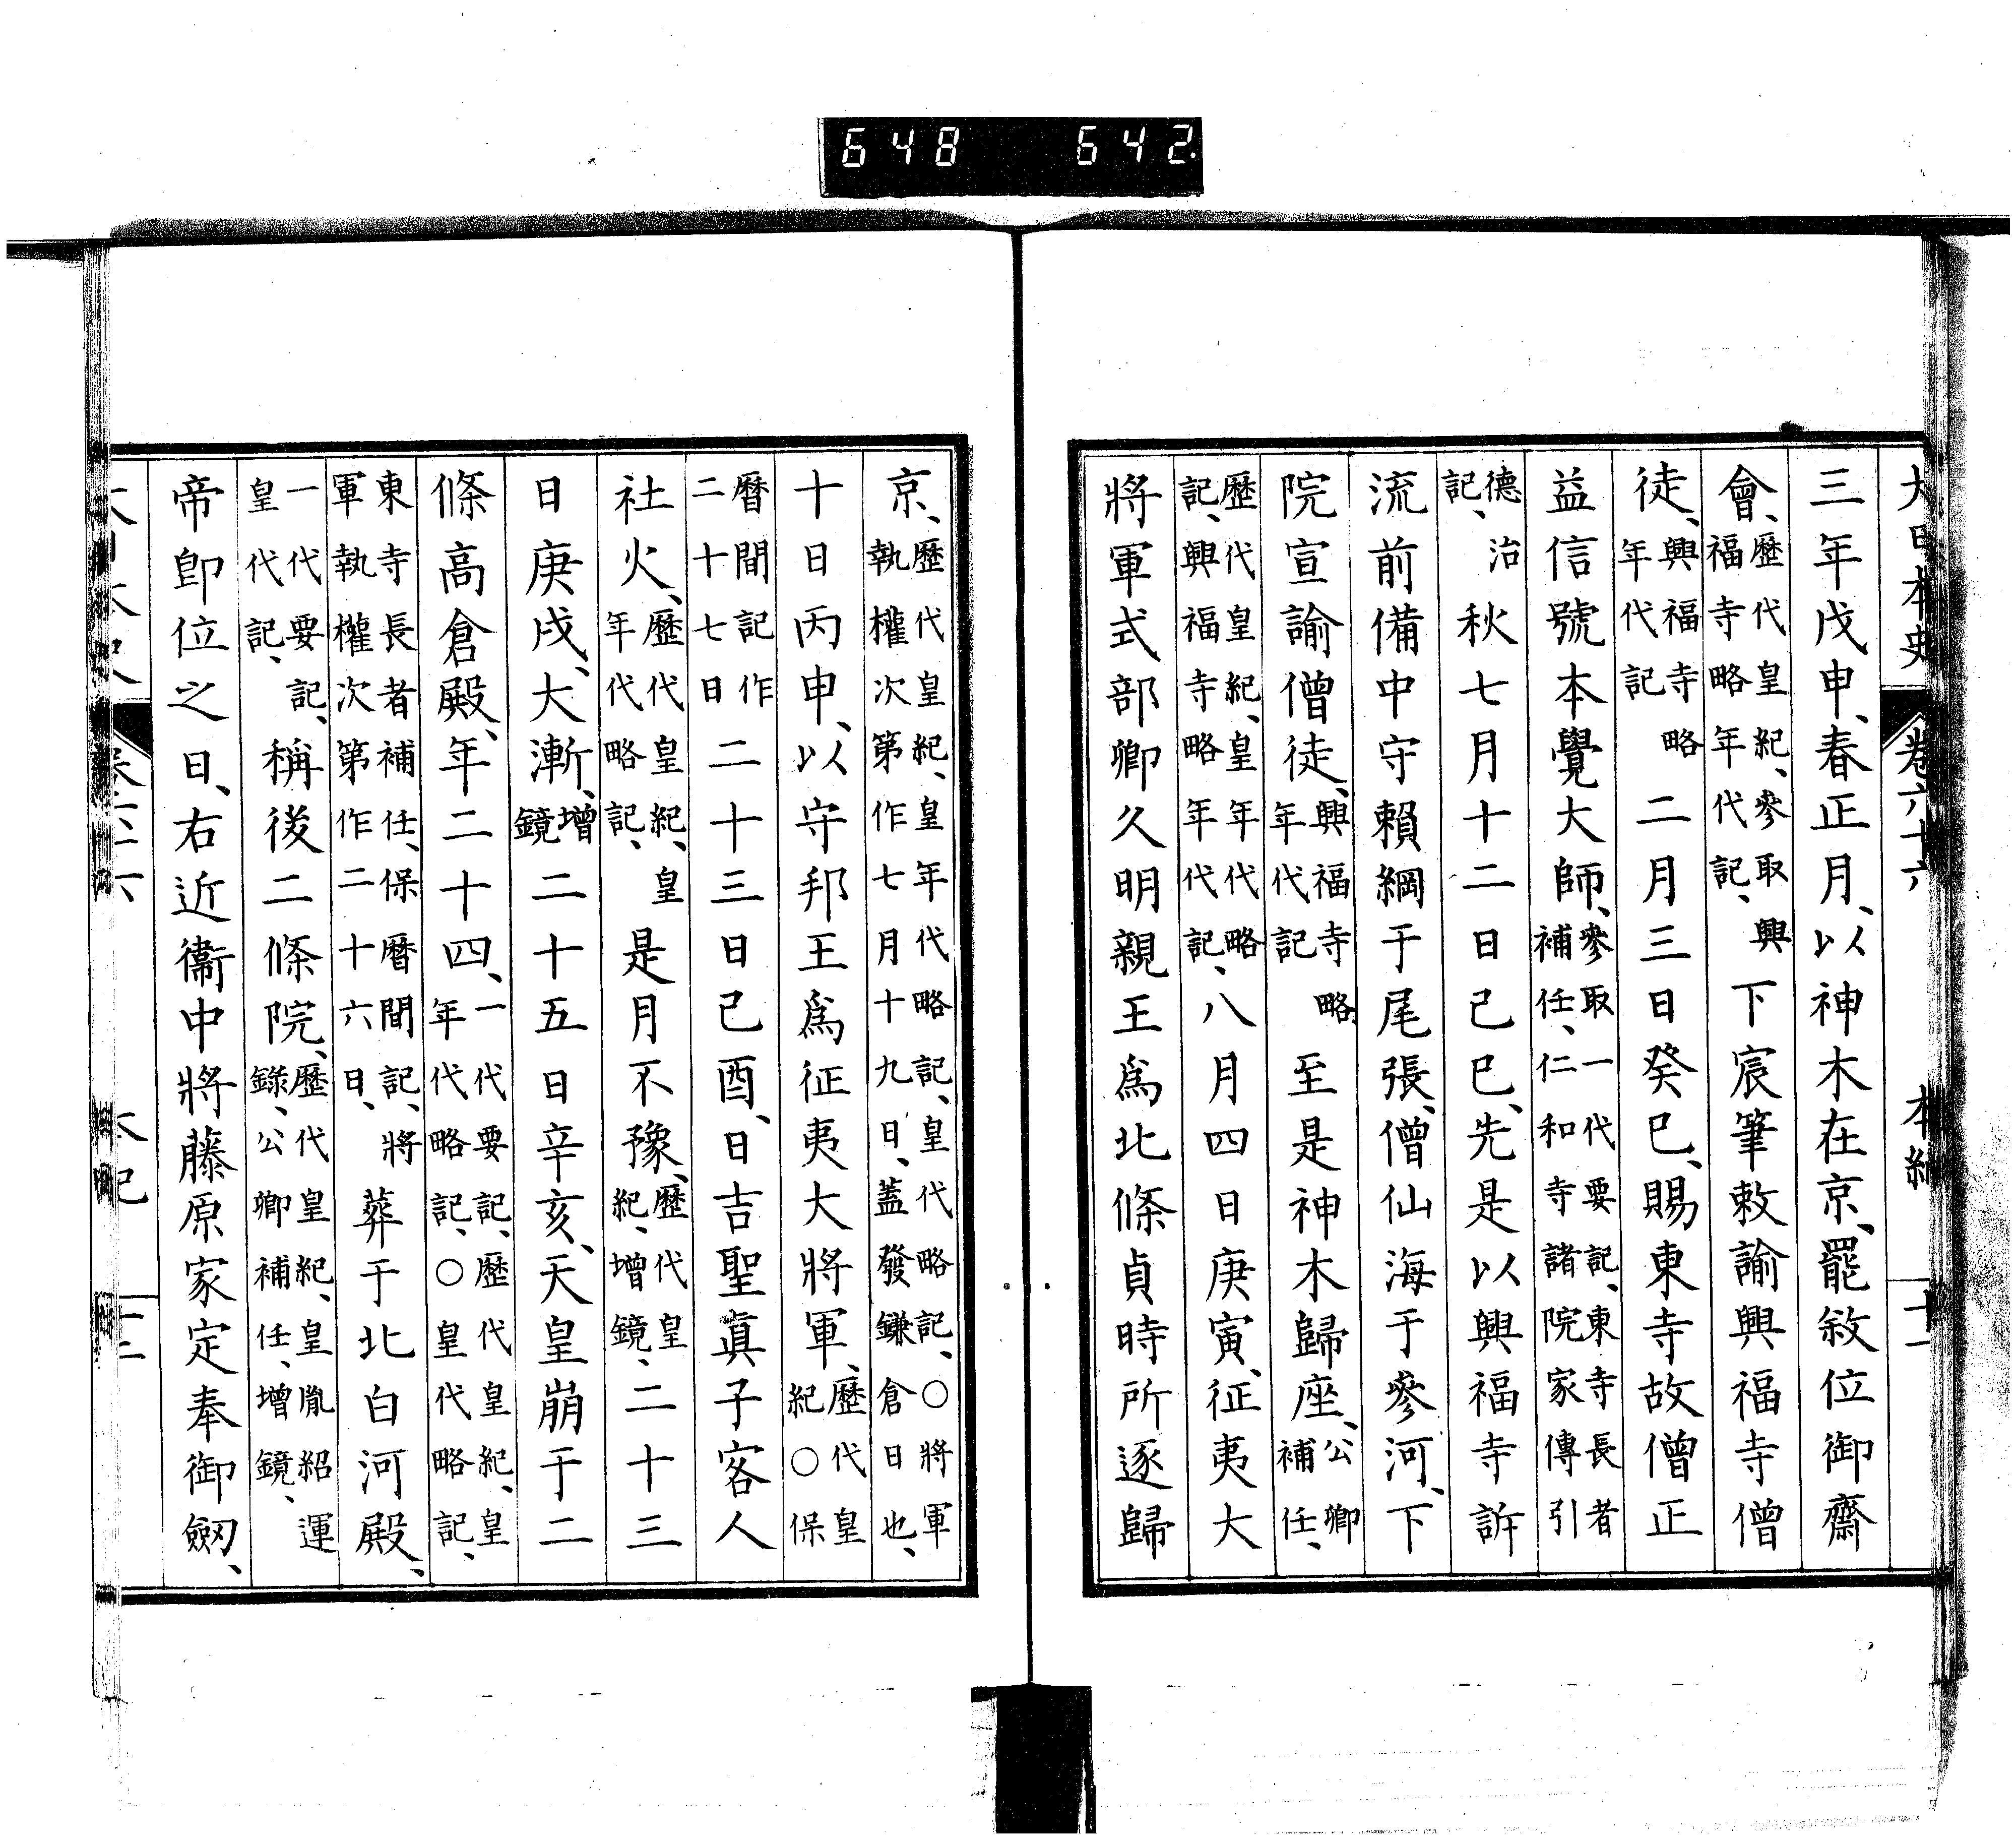 648 642
大日本史 卷六十六 本紀 十一
三年戊申、春正月、以神木在京、罷敘位御齋
會、歷代皇紀、參取興福寺略年代記、下宸筆敕諭興福寺僧
徒、興福寺略年代記 二月三日癸巳、賜東寺故僧正
益信號本覺大師、參取一代要記、東寺長者補任、仁和寺諸院家傳引
德治記、 秋七月十二日己巳、先是以興福寺訴
流前備中守賴綱于尾張、僧仙海于參河、下
院宣諭僧徒、興福寺略年代記 至是神木歸座、公卿補任、
歷代皇紀、皇年代略記、興福寺略年代記、八月四日庚寅、征夷大
將軍式部卿久明親王爲北條貞時所逐歸
京、歷代皇紀、皇年代略記、皇代略記、○將軍執權次第作七月十九日、蓋發鎌倉日也、
十日丙申、以守邦王爲征夷大將軍、歷代皇紀○保
曆間記作二十七日 二十三日己酉、日吉聖眞子客人
社火、歷代皇紀、皇年代略記、 是月不豫、歷代皇紀、增鏡、二十三
日庚戌、大漸、增鏡 二十五日辛亥、天皇崩于二
條高倉殿、年二十四、一代要記、歷代皇紀、皇年代略記、○皇代略記、
東寺長者補任、保曆間記、將軍執權次第作二十六日、 葬于北白河殿、
一代要記、皇代記、 稱後二條院、歷代皇紀、皇胤紹運錄、公卿補任、增鏡、
帝卽位之日、右近衞中將藤原家定奉御劔、